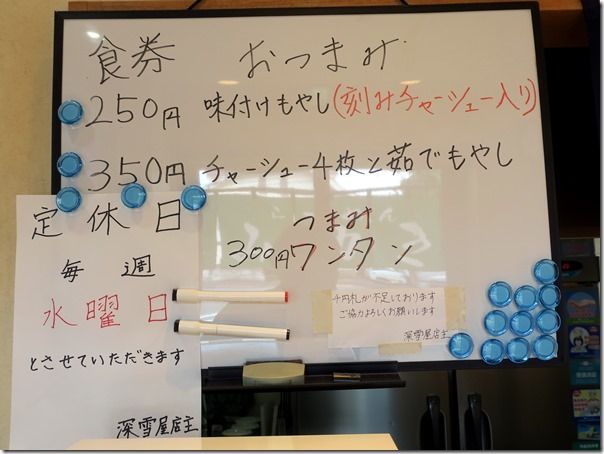 食券 おつまみ
250円 味付けもやし(刻みチャーシュー入り)
350円 チャーシュー4枚と茹でもやし
つまみ
300円ワンタン
千円札が不足しております
ご協力よろしくお願いします
深雪屋店主
定休日
毎週
水曜日
とさせていただきます
深雪屋店主